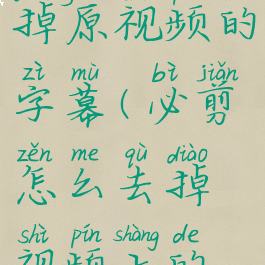 掉原视频的
zì mù bì jiǎn
字幕(必剪
zěn me qù diào
怎么去掉
shì pín shàng de
视频上的